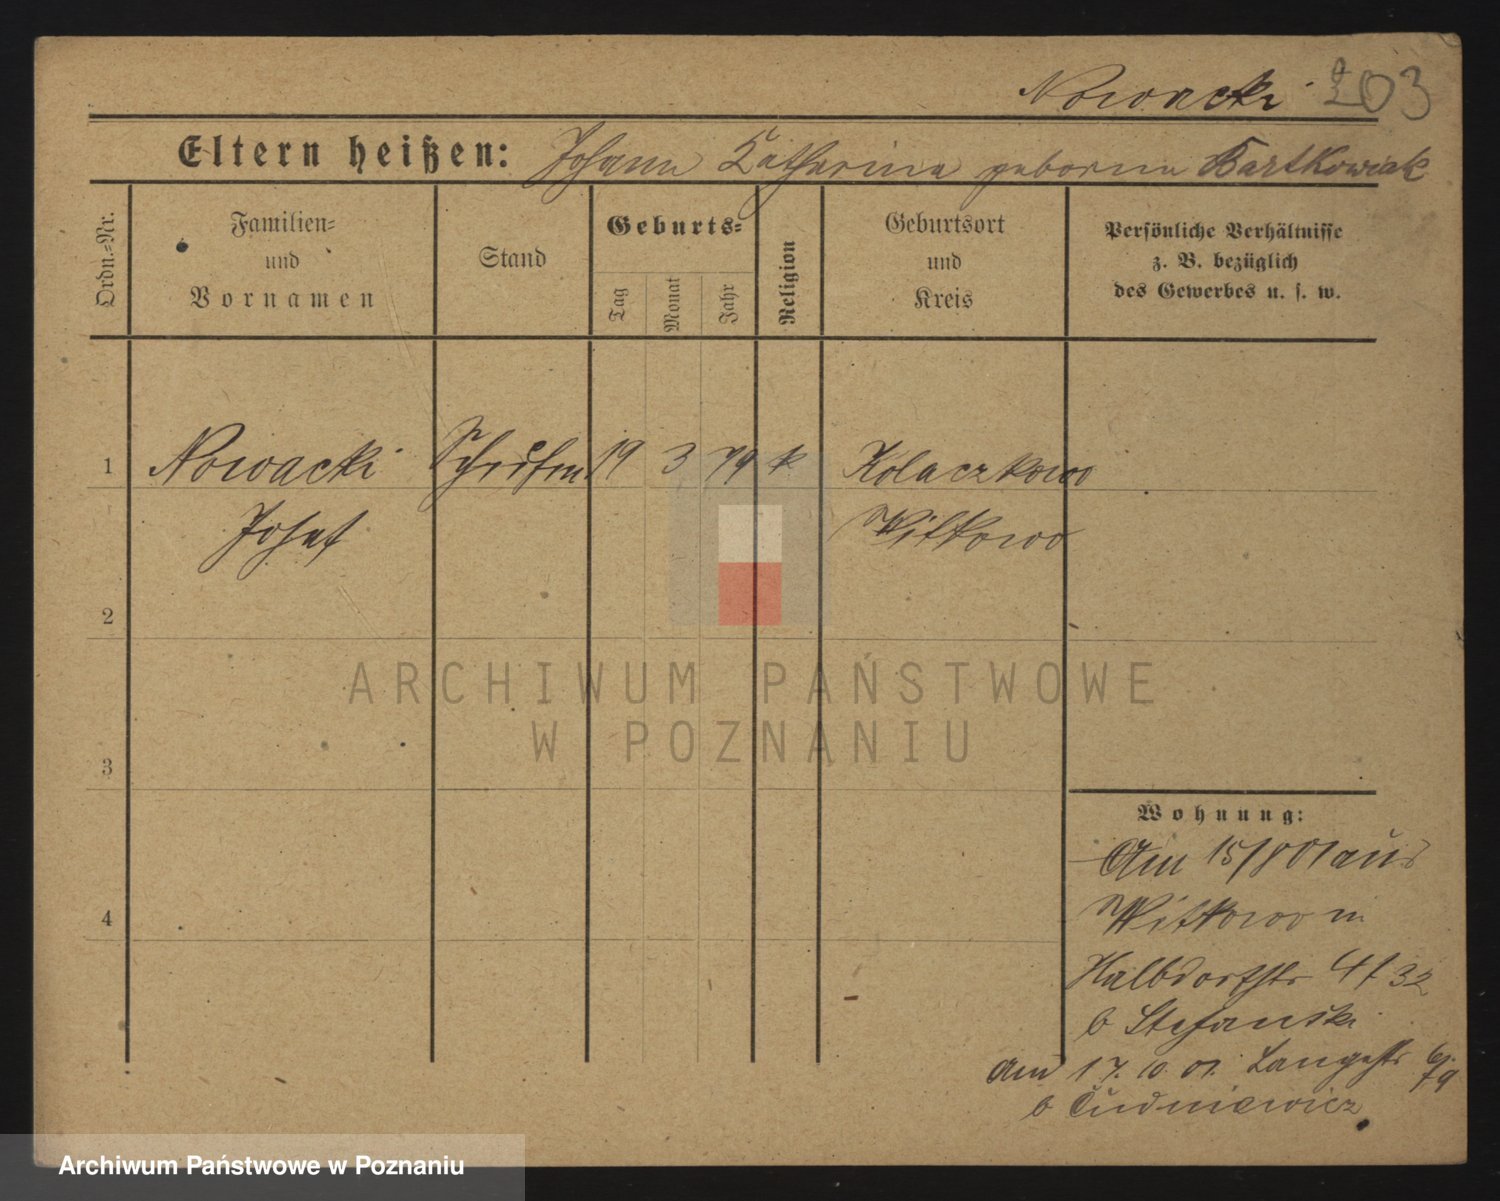 Nowacki 203
Eltern heißen: Johann Katharina geborne Bartkowiak
Ordn.-Nr.
Familien-
und
Vornamen
Stand
Geburts-
Tag
Monat
Jahr
Religion
Geburtsort
und
Kreis
Persönliche Verhältnisse
z. B. bezüglich
des Gewerbes u. s. w.
1 Nowacki 19 3 79 k Kolaczkowo
Josef Witkowo
2
3
4
Wohnung:
Am 15/8 01 aus
Witkowo in
Halbdorfstr 4/32
b Stefanski
Am 17. 10. 01. Langestr
b Cudniewicz
ARCHIWUM PAŃSTWOWE
W POZNANIU
Archiwum Państwowe w Poznaniu